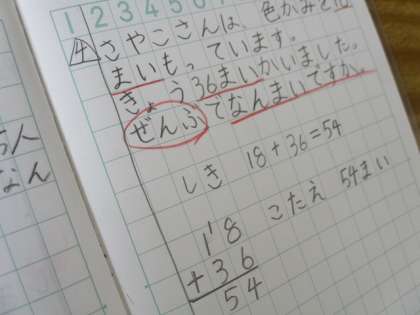 1 2 3 4 5
4 さやこさんは、色がみを18
まいもっています。
きょう36まいかいました。
ぜんぶでなんまいですか。
しき 18+36=54
こたえ 54まい
1
18
+36
54
人
なん